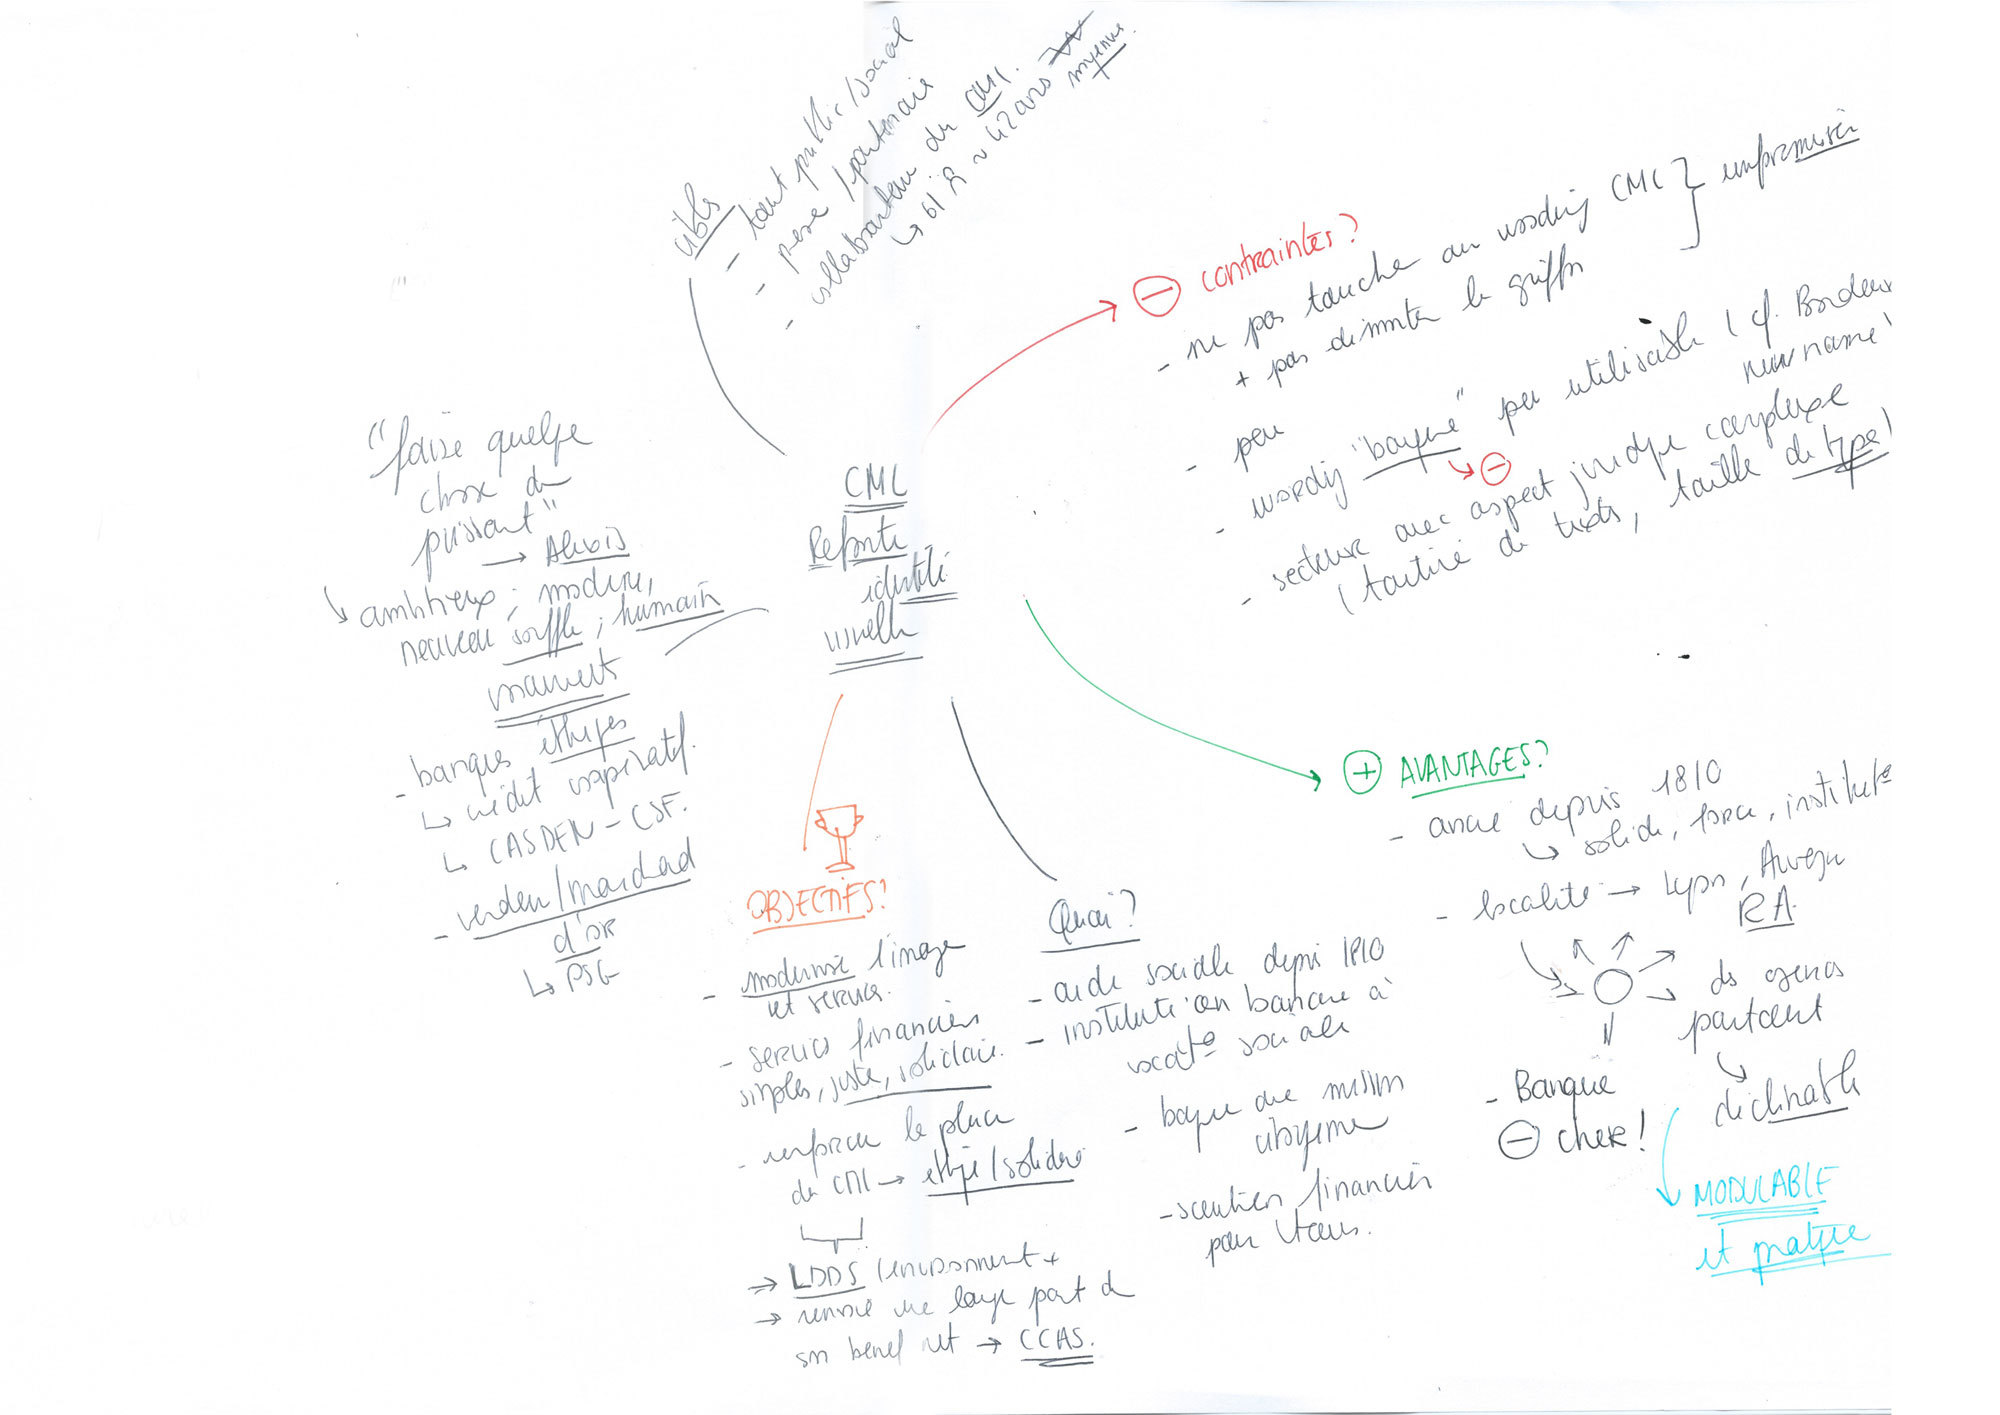 cibles
- tout public / social
- perso / partenaire
- collaborateur du CMC.
↳ 61 R ~ 42 ans
moyenne.
CMC
Refonte
identité
visuelle
⊖ contraintes?
- ne pas toucher au wording CMC
+ pas dimmuter le griffon
- peu
- wording "banque" peu utilisable ( cf. Bordeaux
new name
↳ ⊖
- secteur avec aspect juridique complexe
( tartine de texte, taille de typo )
"faire quelque
chose de
puissant"
ambitieux ; moderne,
nouveau souffle ; humain
- banques éthiques
↳ crédit coopératif.
↳ CASDEN - CSF.
- verdeur / marchand
d'or
↳ PSG
OBJECTIFS?
- moderniser l'image
et services.
- services financiers
simples, juste, solidaire.
- renforcer la place
du CMC → éthique / solidaire
→ LDDS (environnement +
→ renvoie une large part de
son benef net → CCAS.
Quoi?
- aide sociale depuis 1810
- institution bancaire à
vocatº sociale
- banque une mission
citoyenne
- soutien financier
pour tous.
⊕ AVANTAGES?
- ancré depuis 1810
↳ solide, force, institutº
- localité → Lyon, Auvergne
RA.
des agences
partout
↳
déclinable
MODULABLE
et pratique
- Banque
⊖ cher!